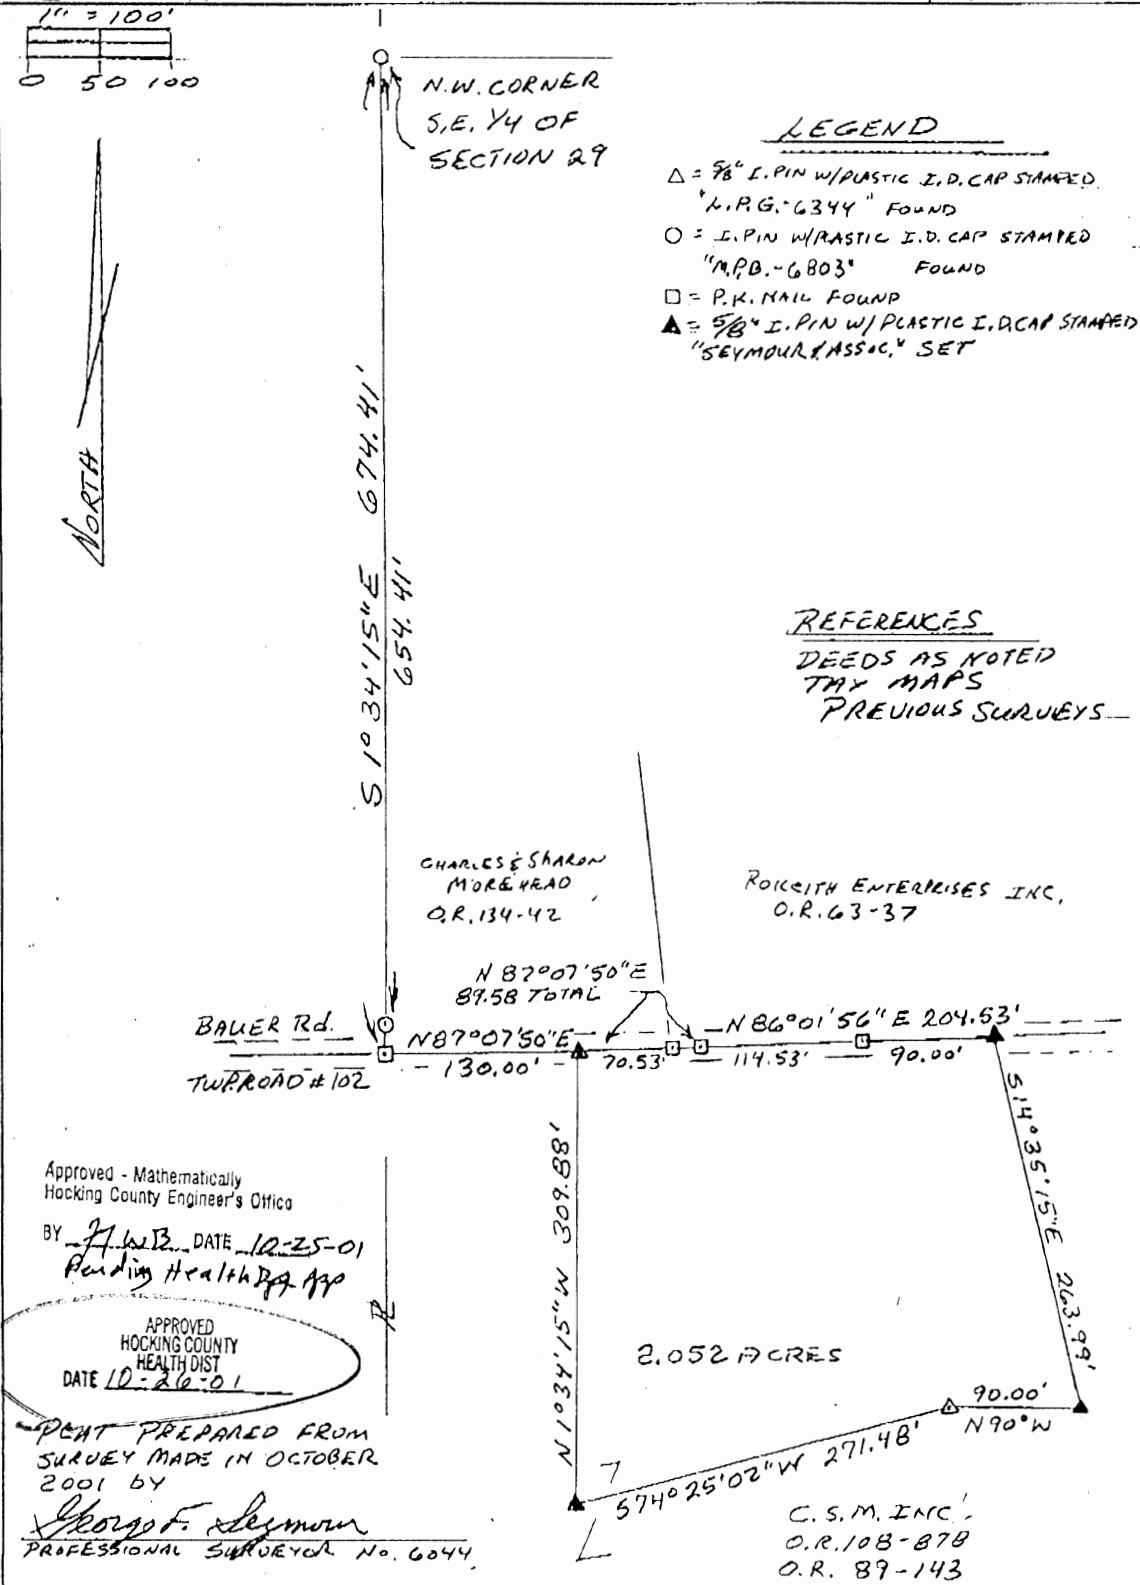 1" = 100'
0 50 100
N.W. CORNER
S.E. 1/4 OF
SECTION 29
LEGEND
△ = 5/8" I. PIN W/PLASTIC I.D. CAP STAMPED
"L.P.G.-6344" FOUND
○ = I. PIN W/PLASTIC I.D. CAP STAMPED
"M.P.B.-6803" FOUND
□ = P.K. NAIL FOUND
▲ = 5/8" I. PIN W/PLASTIC I.D. CAP STAMPED
"SEYMOUR & ASSOC." SET
NORTH
S 1° 34' 15" E 674.41'
654.41'
REFERENCES
DEEDS AS NOTED
TAX MAPS
PREVIOUS SURVEYS
CHARLES & SHARON
MOREHEAD
O.R. 134-42
ROKEITH ENTERPRISES INC.
O.R. 63-37
N 87° 07' 50" E
89.58 TOTAL
BAUER Rd.
TWP. ROAD # 102
N 87° 07' 50" E
130.00'
70.53'
N 86° 01' 56" E 204.53'
114.53'
90.00'
S 14° 35' 15" E 263.99'
N 1° 34' 15" W 309.88'
2.052 ACRES
90.00'
N 90° W
S 74° 25' 02" W 271.48'
C.S.M. INC.
O.R. 108-878
O.R. 89-143
Approved - Mathematically
Hocking County Engineer's Office
BY HWB DATE 10-25-01
Pending Health Dpt. App
APPROVED
HOCKING COUNTY
HEALTH DIST
DATE 10-26-01
PLAT PREPARED FROM
SURVEY MADE IN OCTOBER
2001 BY
George F. Seymour
PROFESSIONAL SURVEYOR No. 6044